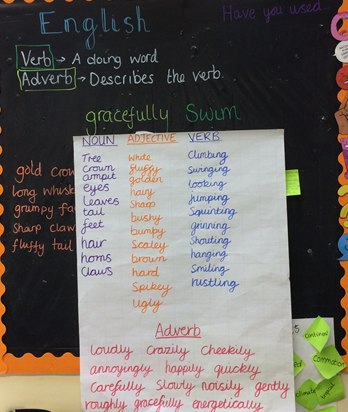 English
Have you used
Verb → A doing word
Adverb → Describes the verb.
gracefully Swim
gold crow
long whisk
grumpy fa
sharp claw
fluffy tail
NOUN ADJECTIVE VERB
Tree White Climbing
crown fluffy Swinging
armpit golden looking
eyes hairy Jumping
leaves Sharp Squinting
tail bushy grinning
feet bumby Shouting
hair Scaley hanging
horns brown Smiling
Claws hard rustling
Spikey
Ugly
Adverb
loudly Crazily Cheekily
annoyingly happily quickly
Carefully Slowly noisily gently
roughly gracefully energetically